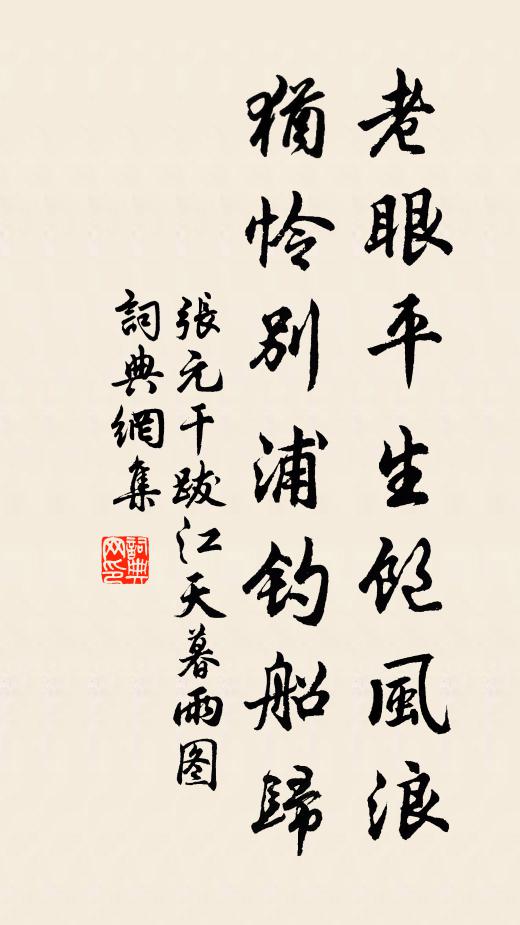 老眼平生飽風浪
猶憐別浦釣船歸
張元干跋江天暮雨图
詞典網集
詞典网印